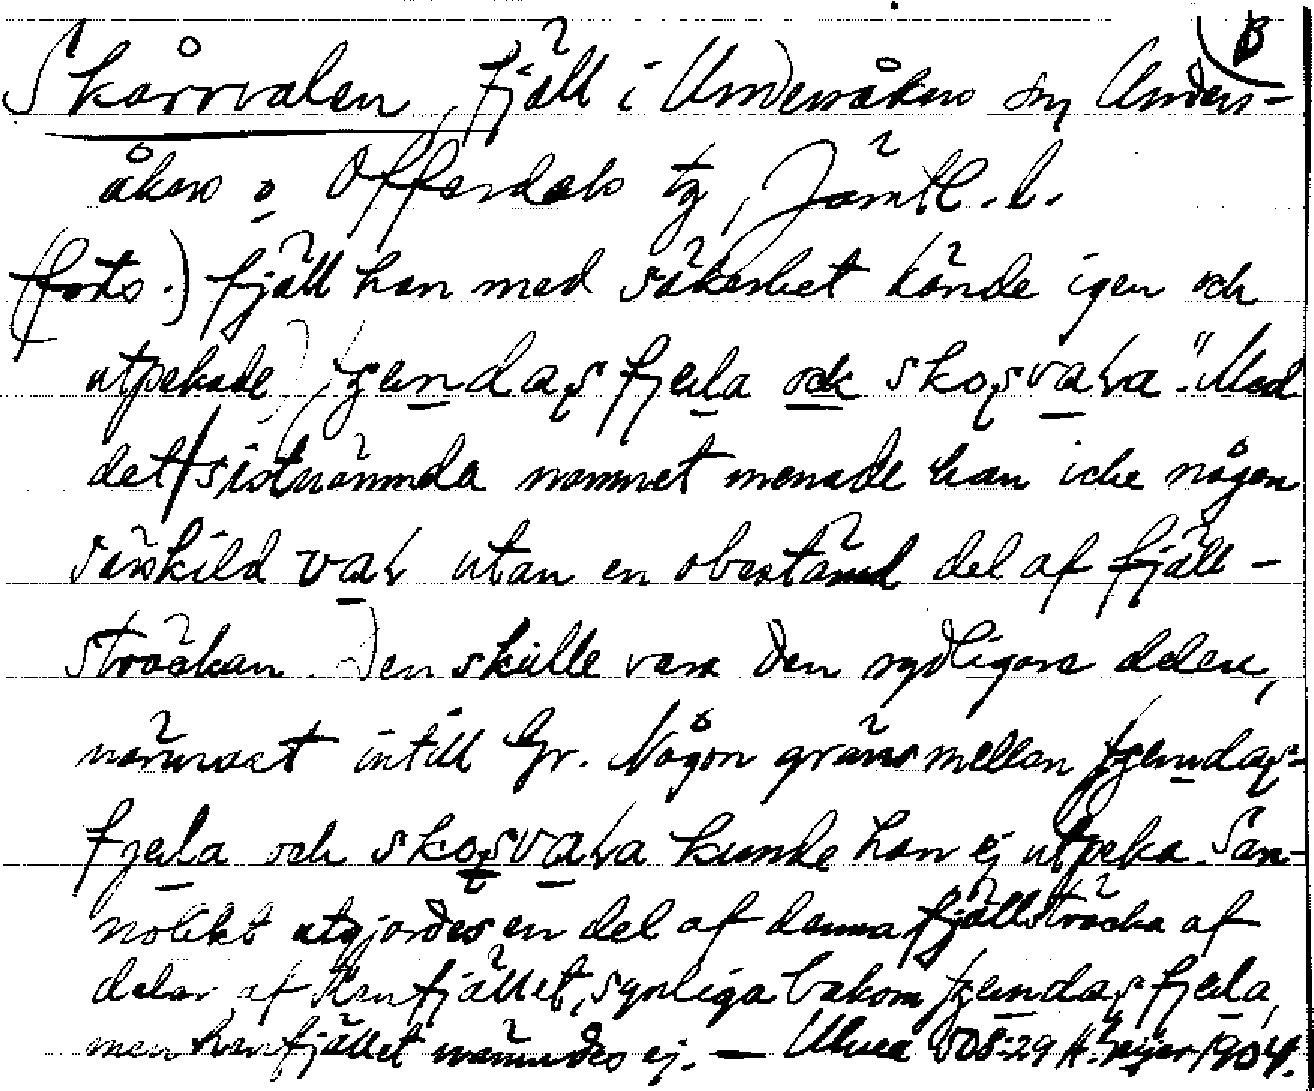 B
Skårrvalen, fjäll i Undersåkers sn, Unders-
åkers o Offerdals tg, Jämtl. l.
(forts.) fjäll han med säkerhet kände igen och
utpekade, fjeila ock skosvala." Med
det sistnämnda namnet menade han icke någon
särskild val utan en obestämd del af fjäll-
sträckan. Den skulle vara den sydligare delen,
närmast intill Gr. Någon gräns mellan
fjeila och skosvala kunde han ej utpeka. San-
nolikt utgjordes en del af denna fjällsträcka af
delar af fjället, synliga bakom fjeila,
men fjället nämndes ej. — Ulma 508:29 1904.